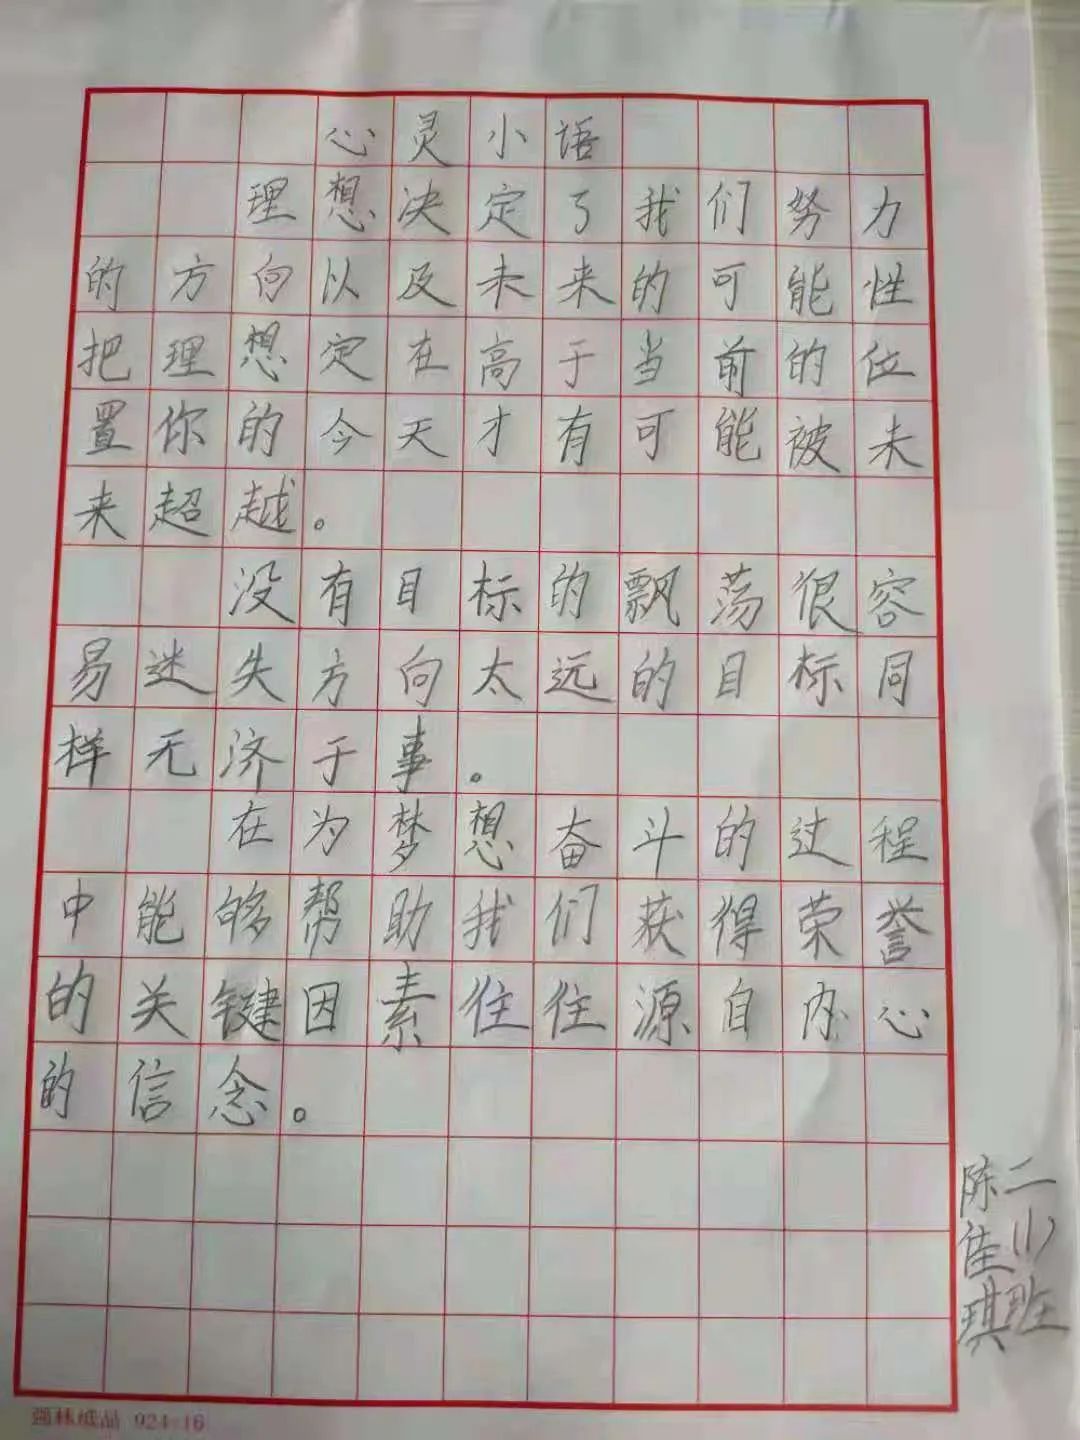 心灵小语
理想决定了我们努力
的方向以及未来的可能性
把理想定在高于当前的位
置你的今天才有可能被未
来超越。
没有目标的飘荡很容
易迷失方向太远的目标同
样无济于事。
在为梦想奋斗的过程
中能够帮助我们获得荣誉
的关键因素住住源自内心
的信念。
二(1)班
陈佳琪
强林纸品 924-16